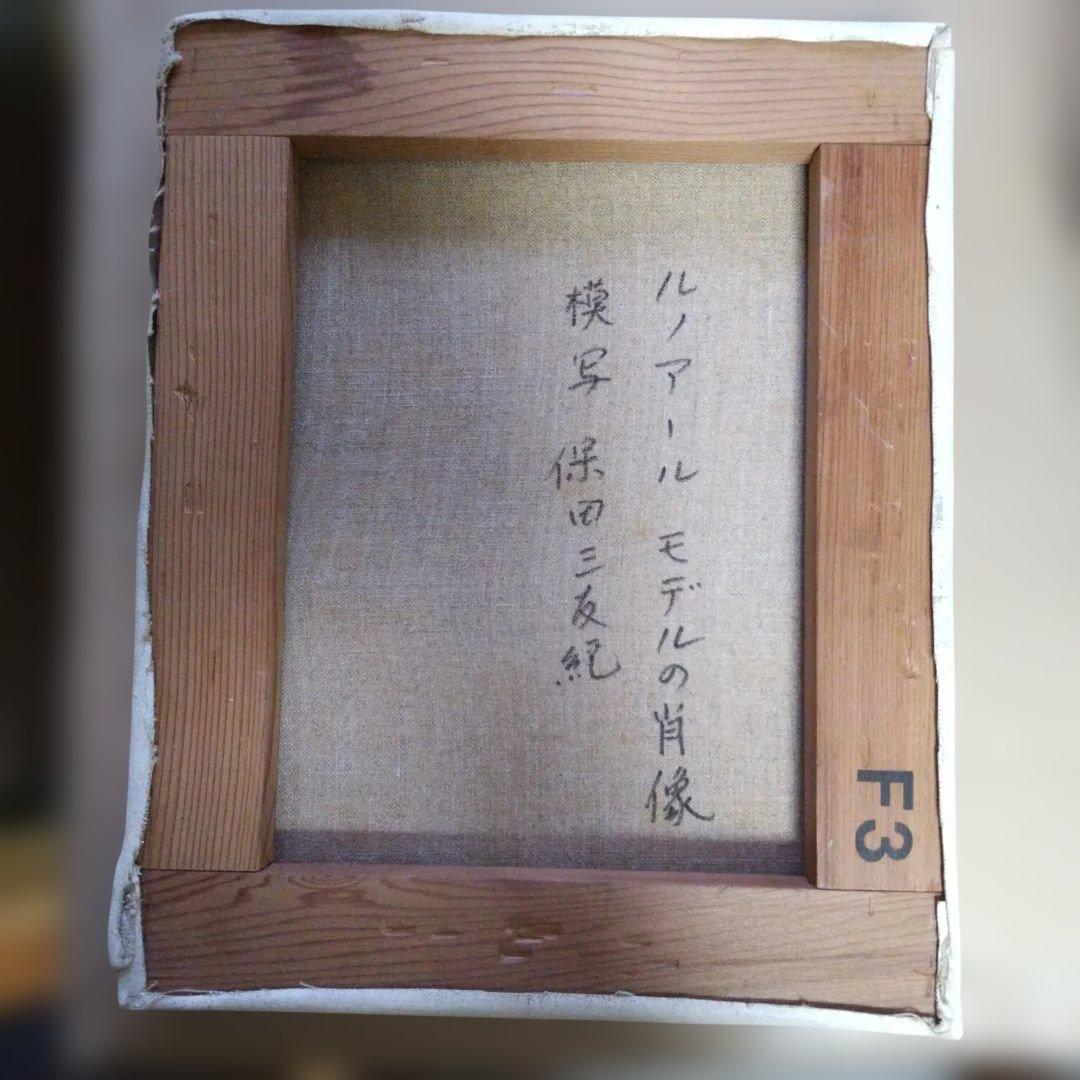 ルノアール モデルの肖像
模写 保田三友紀
F3